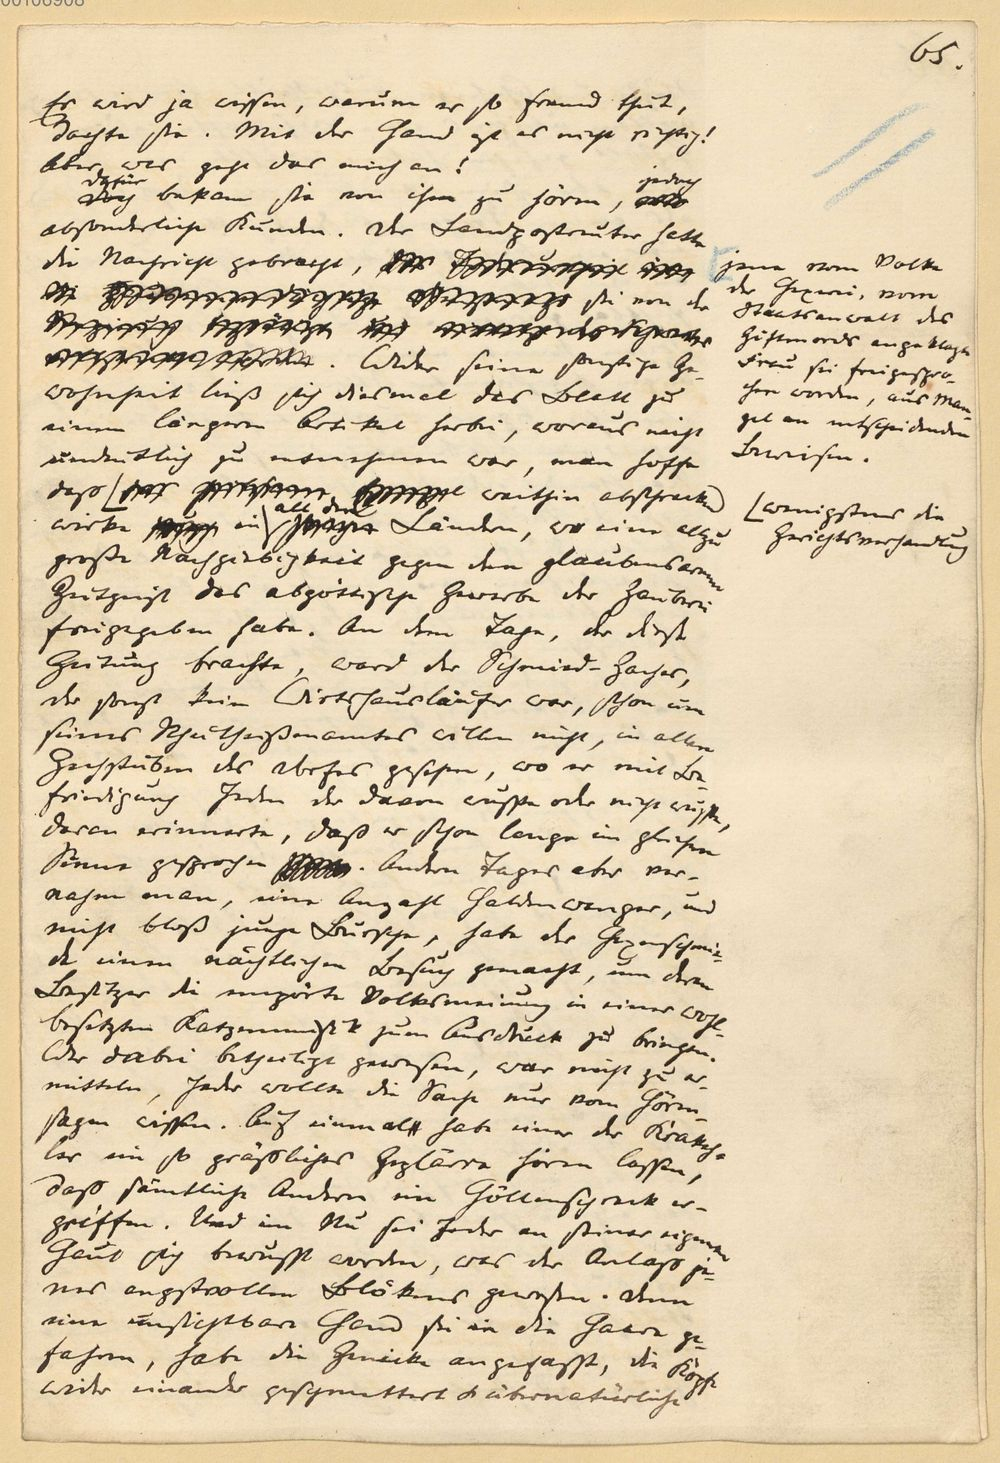 65.
Er wird ja wissen, warum er so fremd thut,
dachte sie. Mit der Hand ist es nicht richtig!
Aber was geht das mich an!
dafür jedoch
bekam sie von ihm zu hören,
absonderliche Kunden. Der Landpostreuter hatte
die Nachricht gebracht,
jene vom Volke
der Hexerei, vom
Staatsanwalt des
Giftmords angeklagte
Frau sei freigespro-
chen worden, aus Man-
gel an entscheidenden
Beweisen.
sie von der
. Wider seine sonstige Ge-
wohnheit ließ sich diesmal das Blatt zu
einem längeren Artikel herbei, woraus nicht
undeutlich zu entnehmen war, man hoffe
daß [ weithin abschreckend
[wenigstens die
Gerichtsverhandlung
wirke in all den Ländern, wo eine allzu
große Nachgiebigkeit gegen den glaubensarmen
Zeitgeist das abgöttische Gewerbe der Zauberei
freigegeben habe. An dem Tage, der diese
Zeitung brachte, ward der Schmied-Zacher,
der sonst kein Wirtshausläufer war, schon um
seines Schultheißenamtes willen nicht, in allen
Zechstuben des Dorfes gesehen, wo er mit Be-
friedigung Jeden der davon wußte oder nicht wußte,
daran erinnerte, daß er schon lange im gleichen
Sinne gesprochen . Andern Tages aber ver-
nahm man, eine Anzahl Haldenwanger, und
nicht bloß junge Bursche, habe der Hexenschmie-
de einen nächtlichen Besuch gemacht, um deren
Besitzer die empörte Volksmeinung in einer wohl-
besetzten Katzenmusik zum Ausdruck zu bringen.
Wer dabei betheiligt gewesen, war nicht zu er-
mitteln, Jeder wollte die Sache nur vom Hören-
sagen wissen. Auf einmal habe einer der
ein so gräßliches Geplärre hören lassen,
daß sämtliche Andern ein Höllenschreck er-
griffen. Und im Nu sei Jeder an seiner eigenen
Haut sich bewußt worden, was der Anlaß je-
nes angstvollen Blökens gewesen. Denn
eine unsichtbare Hand sei in die Haare ge-
fahren, habe die Genicke angefaßt, die Köpfe
wider einander geschmettert & übernatürliche